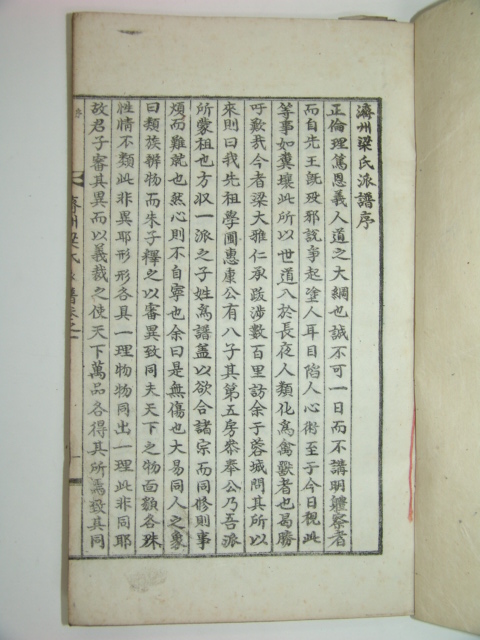 濟州梁氏派譜序
正倫理篤恩義人道之大綱也誠不可一日而不講明體察者
而自先王旣歿邪說爭起塗人耳目陷人心術至于今日視此
等事如糞壤此所以世道入於長夜人類化爲禽獸者也曷勝
吁歎我今者梁大雅仁承跋涉數百里訪余于蓉城問其所以
來則曰我先祖學圃惠康公有八子其第五房叅奉公乃吾派
所蒙祖也方収一派之子姓寫譜盖以欲合諸宗而同修則事
煩而難就也然心則不自寧也余曰是無傷也大易同人之象
曰類族辨物而朱子釋之以審異致同夫天下之物面顔各殊
性情不類此非異耶形形各具一理物物同出一理此非同耶
故君子審其異而以義裁之使天下萬品各得其所焉致其同
濟州梁氏派譜卷之一